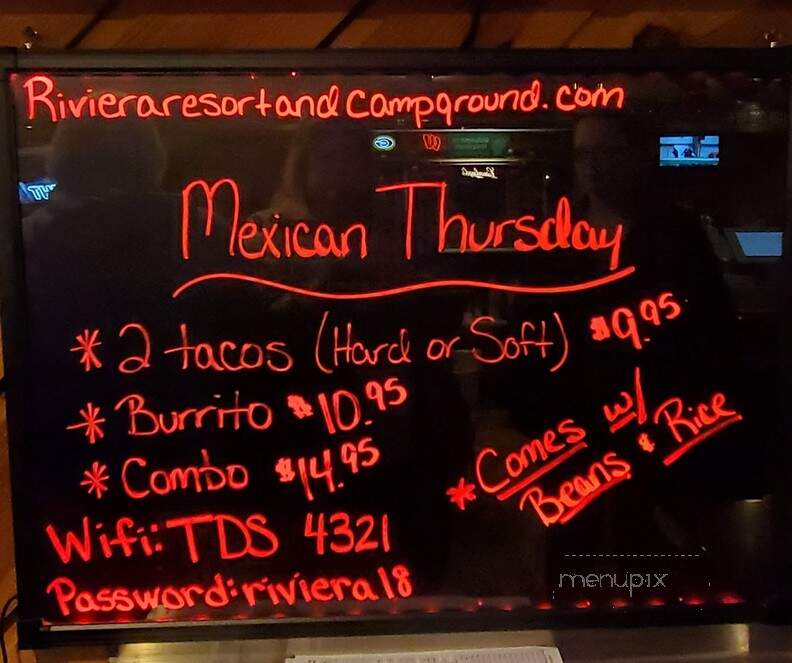 Rivieraresortandcampground.com
Mexican Thursday
* 2 tacos (Hard or Soft) $9.95
* Burrito $10.95
* Combo $14.95
* Comes w/
Beans & Rice
Wifi: TDS 4321
Password: riviera18
menupix